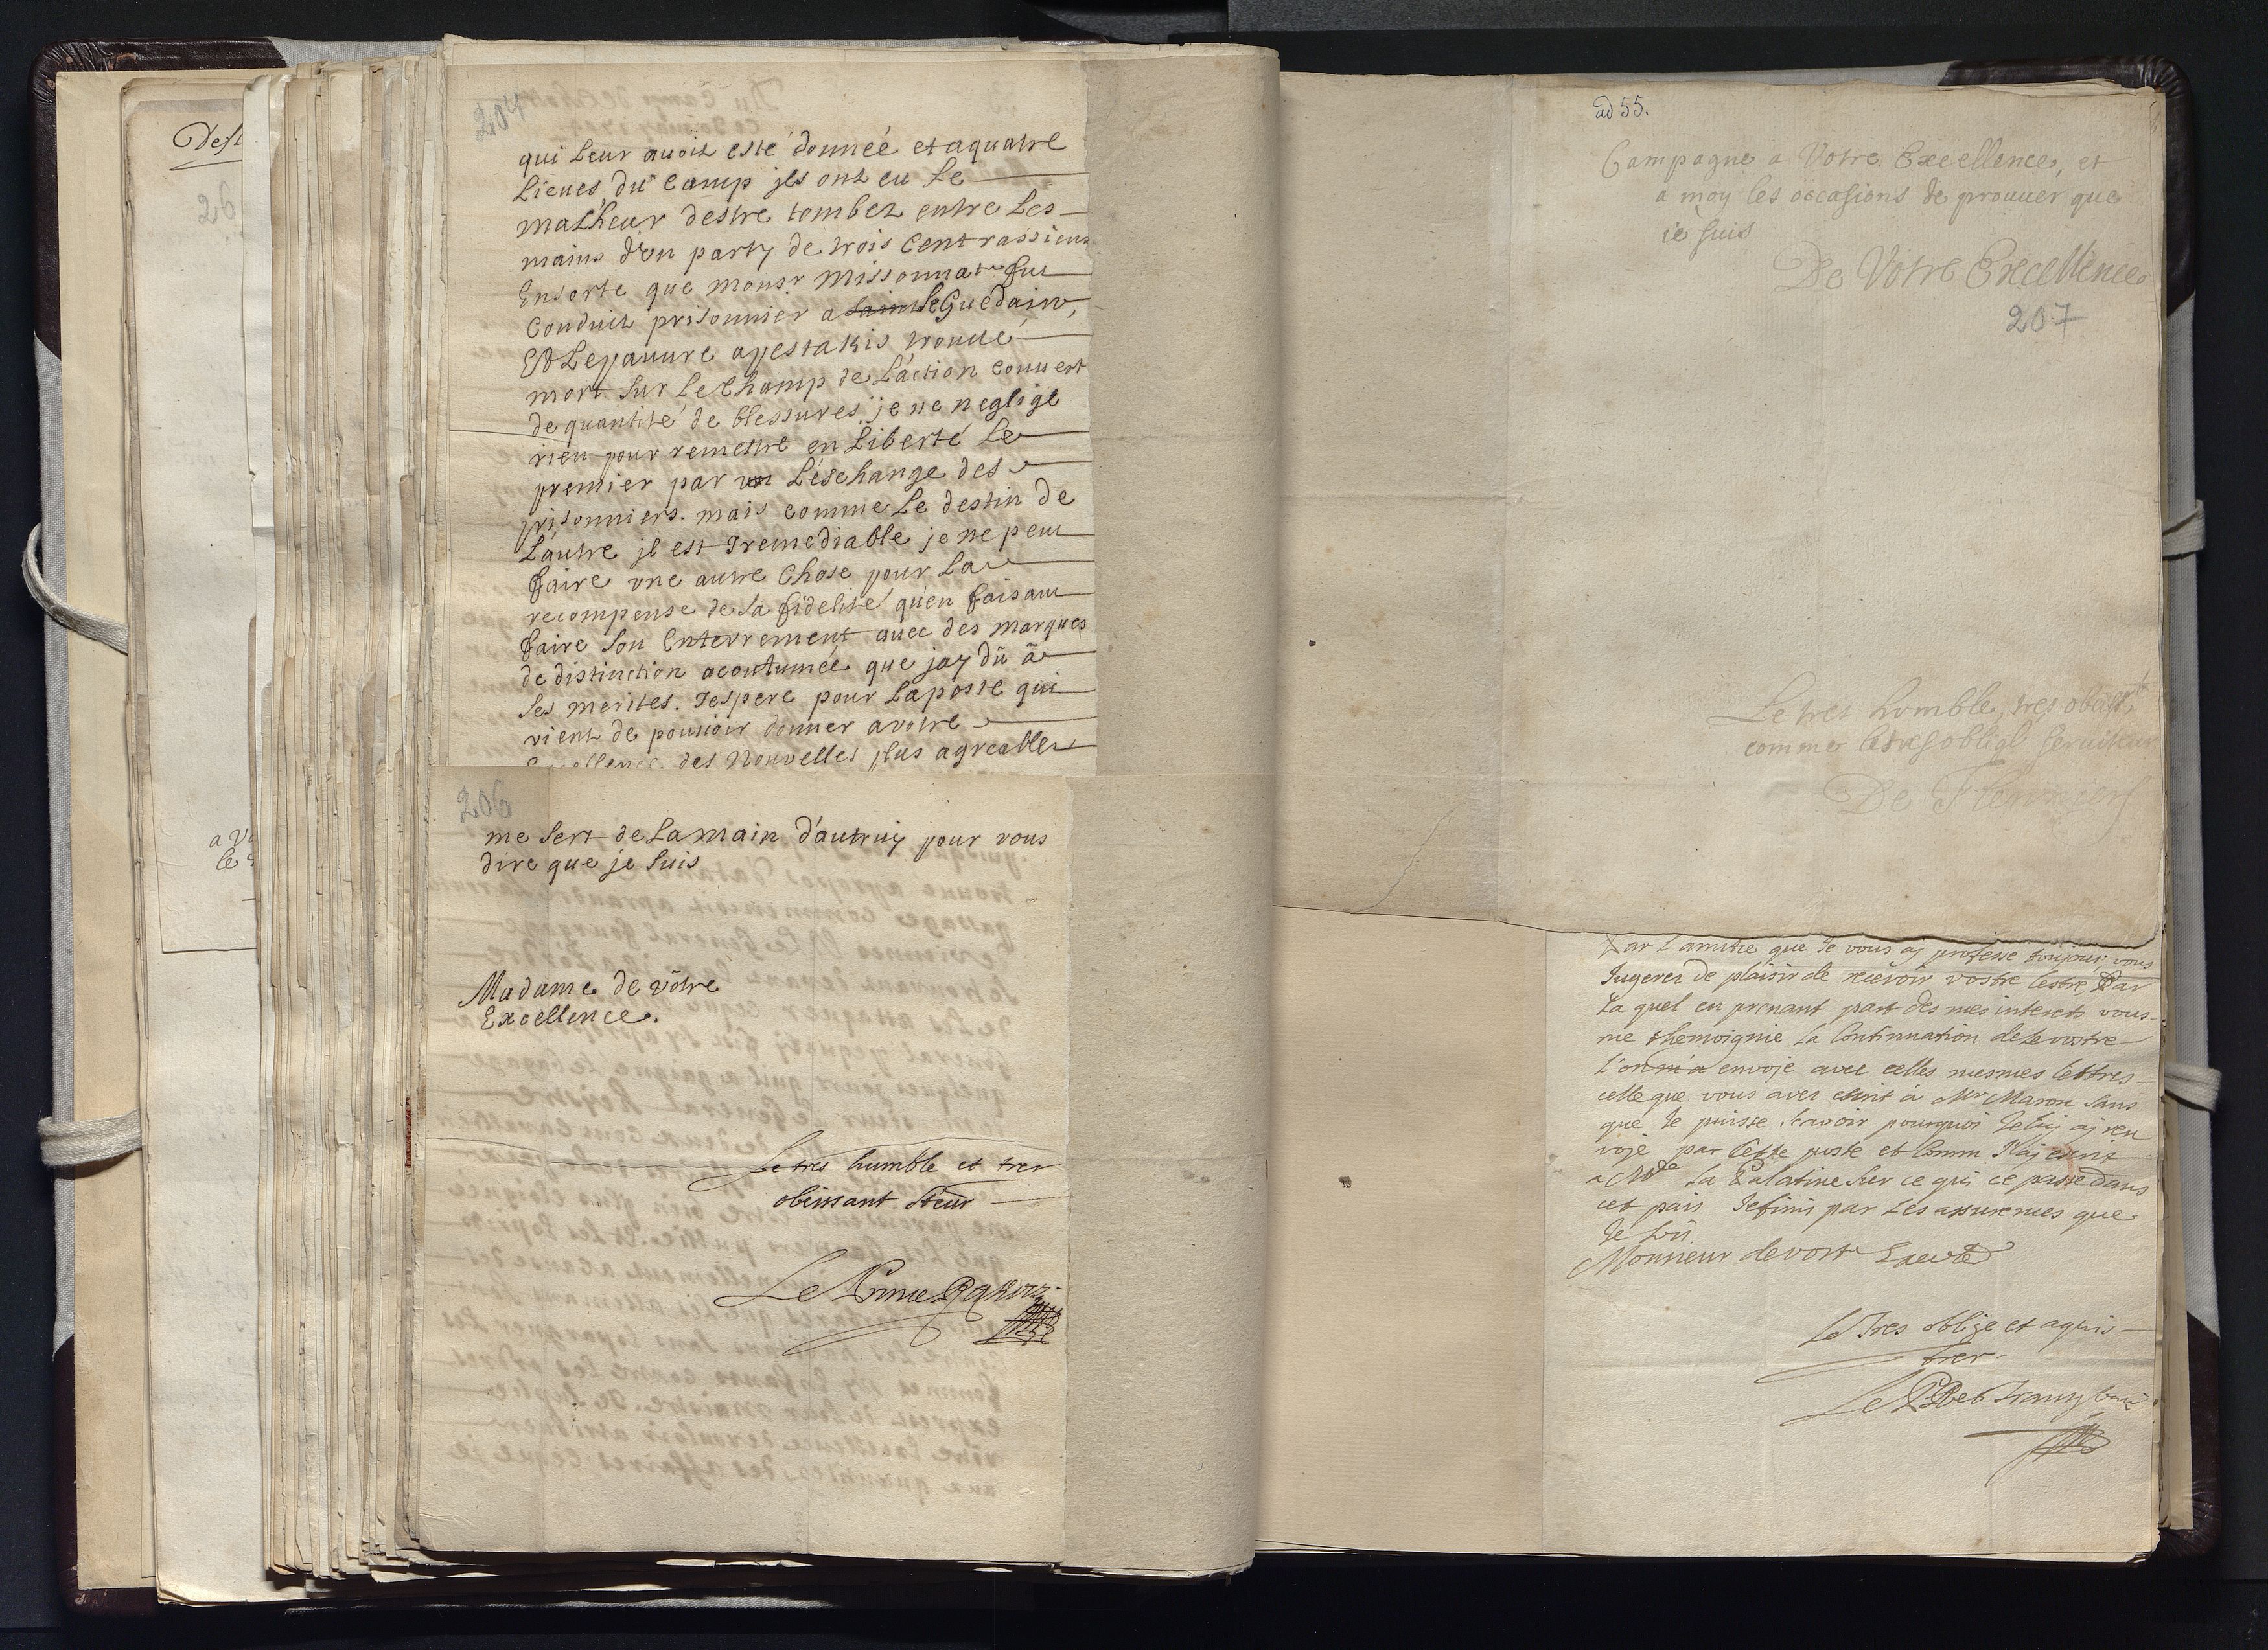 Dest
26
a Vo
le
204
qui Leur auoit esté donnéé et aquatre
Lieues du Camp jls ont eu Le
malheur destre tombez entre Les
mains d'vn party de trois Cent rassiens
Ensorte que monsr Missonnat fut
Conduit prisonnier a Seguedain,
Et Lepauure apestakis trouué
mort sur Le Champ de L'action couuert
de quantité de blessures, je ne neglige
rien pour remettre en Liberté Le
premier par L'eschange des
prisonniers. mais comme Le destin de
L'autre jl est Iremediable je ne peut
faire vne autre Chose pour La
recompense de sa fidelité qu'en faisant
faire son Enterrement auec des marques
de distinction acoutumée que jay dû à
ses merites. Jespere pour La poste qui
vient de pouuoir donner a votre
Excellence des Nouvelles plus agreables
206
me sert de La main d'autruy pour vous
dire que je suis
Madame de vôtre
Excellence.
Le tres humble et tres
obeissant Steur
Le Prince Rakoczi
ad 55.
Campagne a Votre Excellence, et
a moy les occasions de prouuer que
ie suis
De Votre Excellence
207
Le tres humble, tres obeist,
comme tres obligé seruiteur
De Flemming
Par l'amitie que Je vous aj professe toujours vous
Jugeres de plaisir de recevoir vostre lestre, Par
La quel en prenant part des mes interets vous
me themoignie la Continuation de Le vostre
L'on m'a envoje avec celles mesmes lettres
celle que vous aves escrit à Mr Maron sans
que Je puisse scavoir pourquoi Je luj aj ren
voje par Cette poste et Comm J'aj escrit
a Mde La Palatine sur ce qui ce passe dans
cet pais Je finis par Les assurences que
Je suis
Monsieur de vostre
Le Tres oblige et aquis
Le P